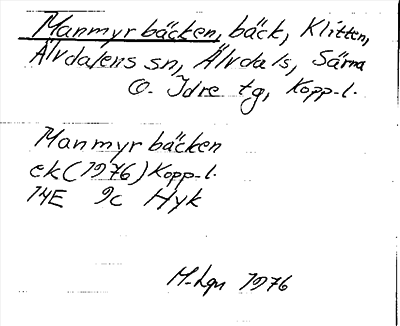 Manmyrbäcken, bäck, Klitten,
Älvdalens sn, Älvdals, Särna
o. Idre tg, Kopp-l.
Manmyrbäcken
ek (1976) Kopp-l.
14E 9c Hyk
M-Lgn 1976